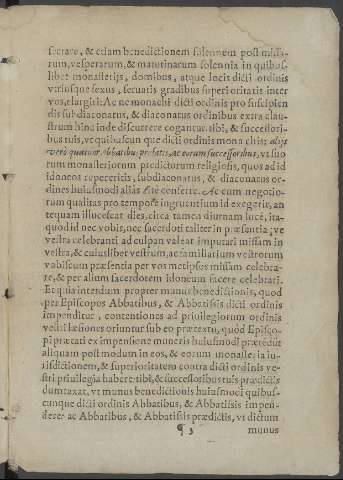 secrare, & etiam benedictionem solennem post missa-
rum, vesperarum, & matutinarum solennia in quibus-
libet monasterijs, domibus, atque locis dicti ordinis
vtriusque sexus, seruatis gradibus superioritatis inter
vos, elargiri: Ac ne monachi dicti ordinis pro suscipien
dis subdiaconatus, & diaconatus ordinibus extra clau-
strum hinc inde discurrere cogantur. tibi, & successori-
bus tuis, vt quibuscun que dicti ordinis monachis: alijs
verò quatuor Abbatibus præfatis, ac eorum successoribus, vt suo
rum monasteriorum prædictorum religiosis, quos ad id
idoneos repereritis, subdiaconatus, & diaconatus or-
dines huiusmodi alias ritè conferre. Ac cum negotio-
rum qualitas pro tempore ingruentium id exegerit, an
tequam illucescat dies, circa tamen diurnam lucē, ita-
quod id nec vobis, nec sacerdoti taliter in præsentia ve
vestra celebranti ad culpan valeat imputari missam in
vestra, & cuiuslibet vestrum, ac familiarium vestrorum
vobiscum præsentia per vos metipsos missam celebra-
re, & per alium sacerdotem idoneum facere celebrari.
Et quia interdum propter munus benedictionis, quod
per Episcopos Abbatibus, & Abbatissis dicti ordinis
impenditur, contentiones ad priuilegiorum ordinis
vestri læsiones oriuntur sub eo prætextu, quod Episco-
pi præfati ex impensione muneris huiusmodi prætēdūt
aliquam post modum in eos, & eorum monasteria iu-
risdictionem, & superioritatem contra dicti ordinis ve-
stri priuilegia habere. tibi, & successoribus tuis prædictis
dumtaxat, vt munus benedictionis huiusmodi quibus-
cunque dicti ordinis Abbatibus, & Abbatissis impen-
dere: ac Abbatibus, & Abbatissis prædictis, vt dictum
¶ 3
munus